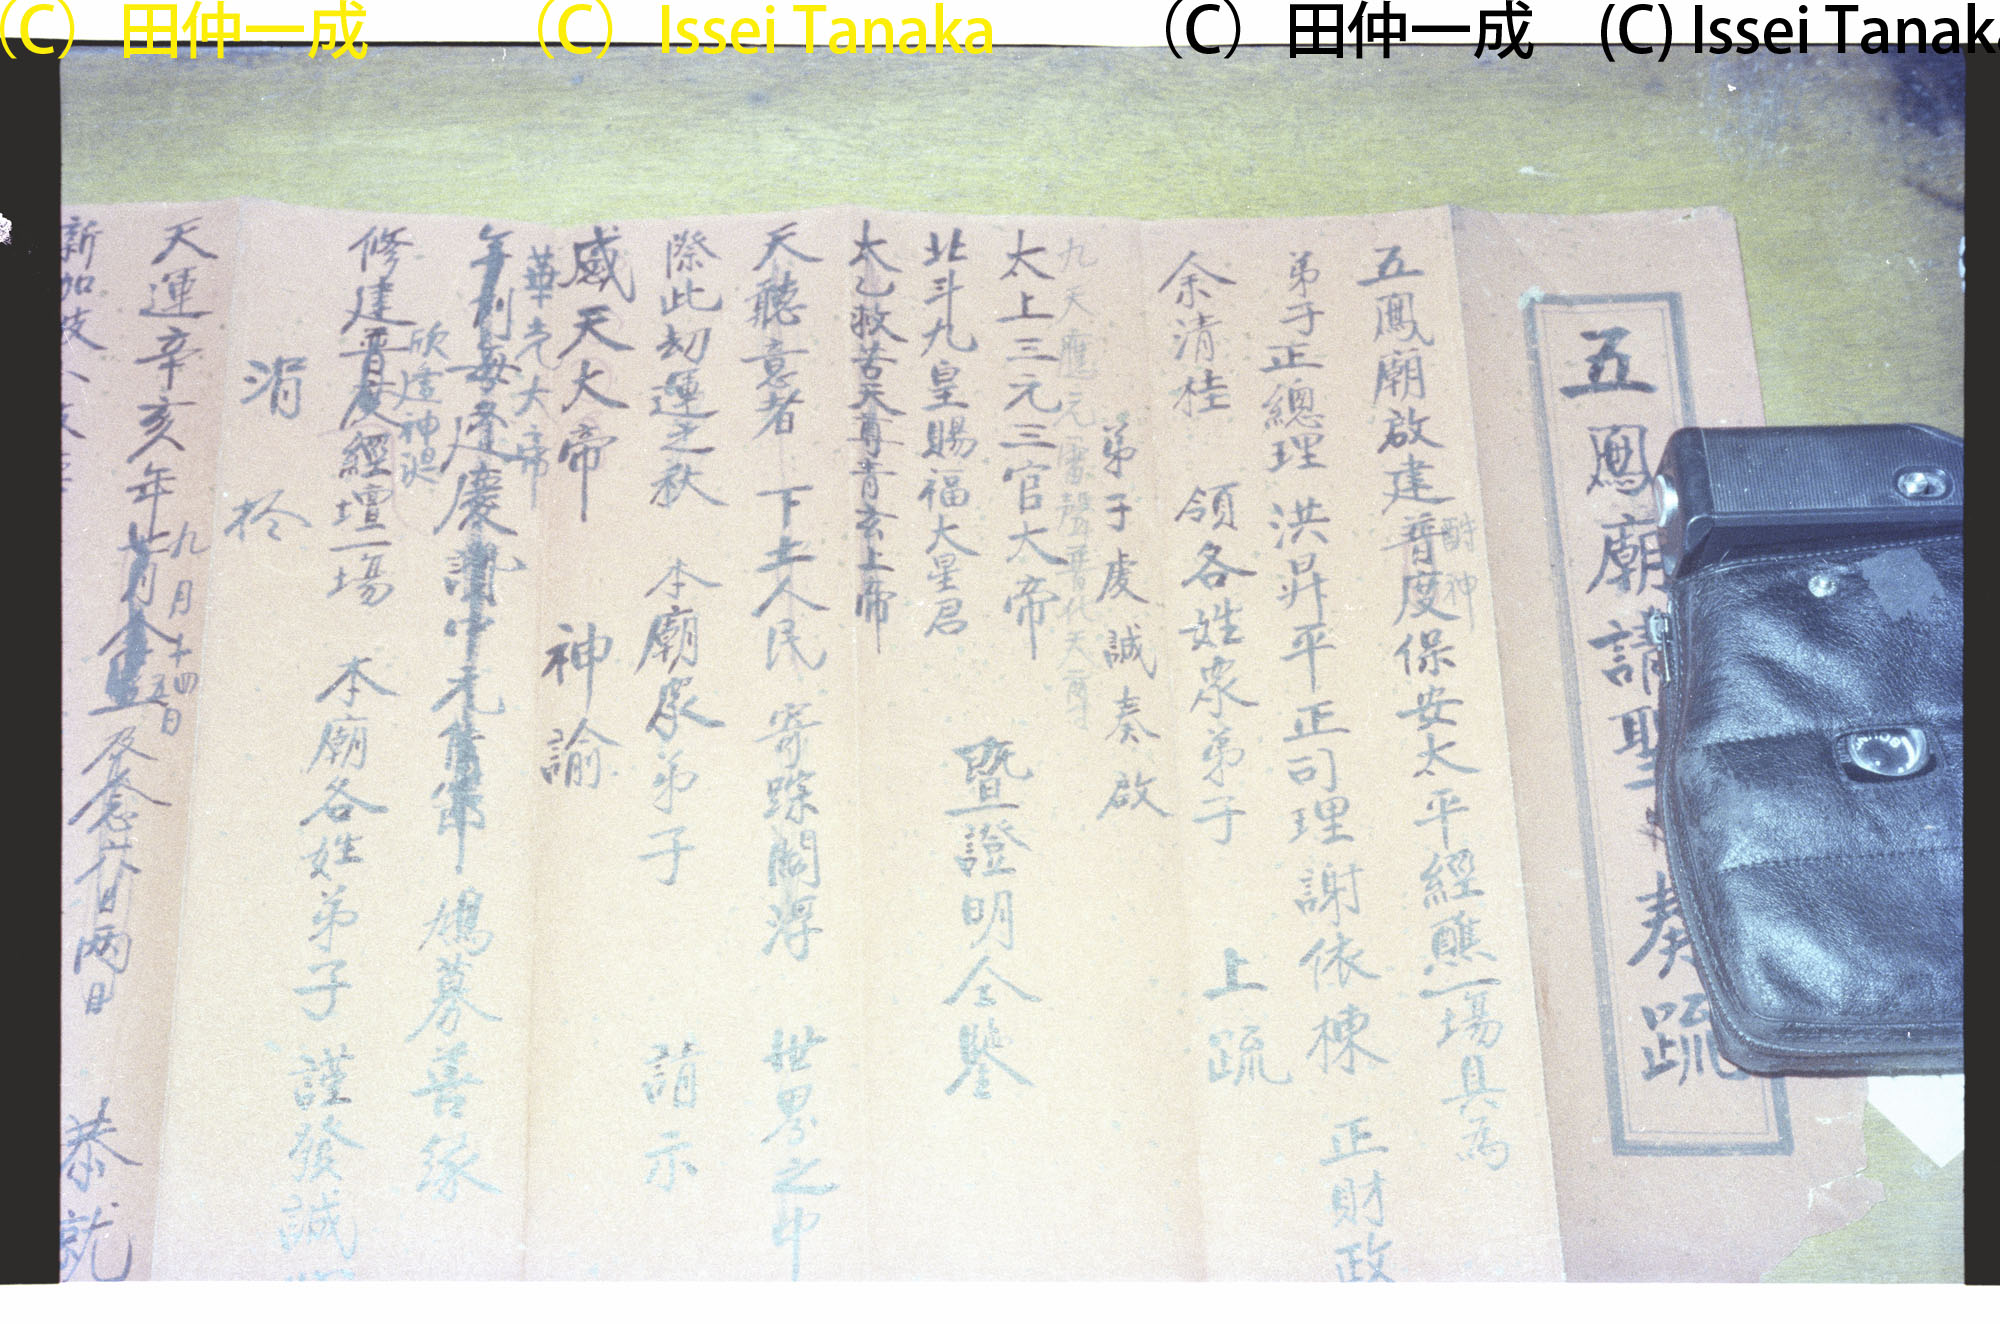 (C) 田仲一成 (C) Issei Tanaka (C) 田仲一成 (C) Issei Tanaka
五鳳廟請聖奏疏
五鳳廟啟建普度保安太平經醮一場具為
酧神
弟子正總理 洪昇平 正司理 謝依棟 正財政
余清桂 領各姓眾弟子 上疏
弟子虔誠奏啟
九天應元雷聲普化天尊
太上三元三官大帝
北斗九皇賜福大星君 暨證明仝鑒
太乙救苦天尊青玄上帝
天聽意者 下土人民 寄踪閻浮 世界之中
際此劫運之秋 本廟眾弟子 請示
威天大帝 神諭
華光大帝
年利每逢慶讚中元 鳩募善緣
欣逢神誕
修建普度經壇一場 本廟各姓弟子 謹發誠
涓於
天運辛亥年 及念 日两日 恭就
九月十四五日
新加坡